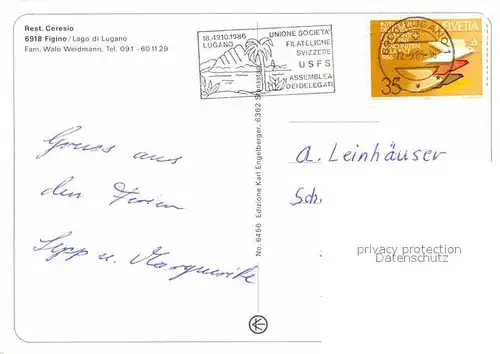 Rest. Ceresio
6918 Figino/Lago di Lugano
Fam. Walo Weidmann, Tel. 091 - 60 11 29
18.-19.10.1986
LUGANO
UNIONE SOCIETA'
FILATELICHE
SVIZZERE
USFS
ASSEMBLEA
DEI DELEGATI
HELVETIA
35
Gruss aus
den Ferien
Sepp u. Marguerite
No. 6456 Edizione Karl Engelberger, 6362 Stansstad
A. Leinhäuser
Sch.
privacy protection
Datenschutz